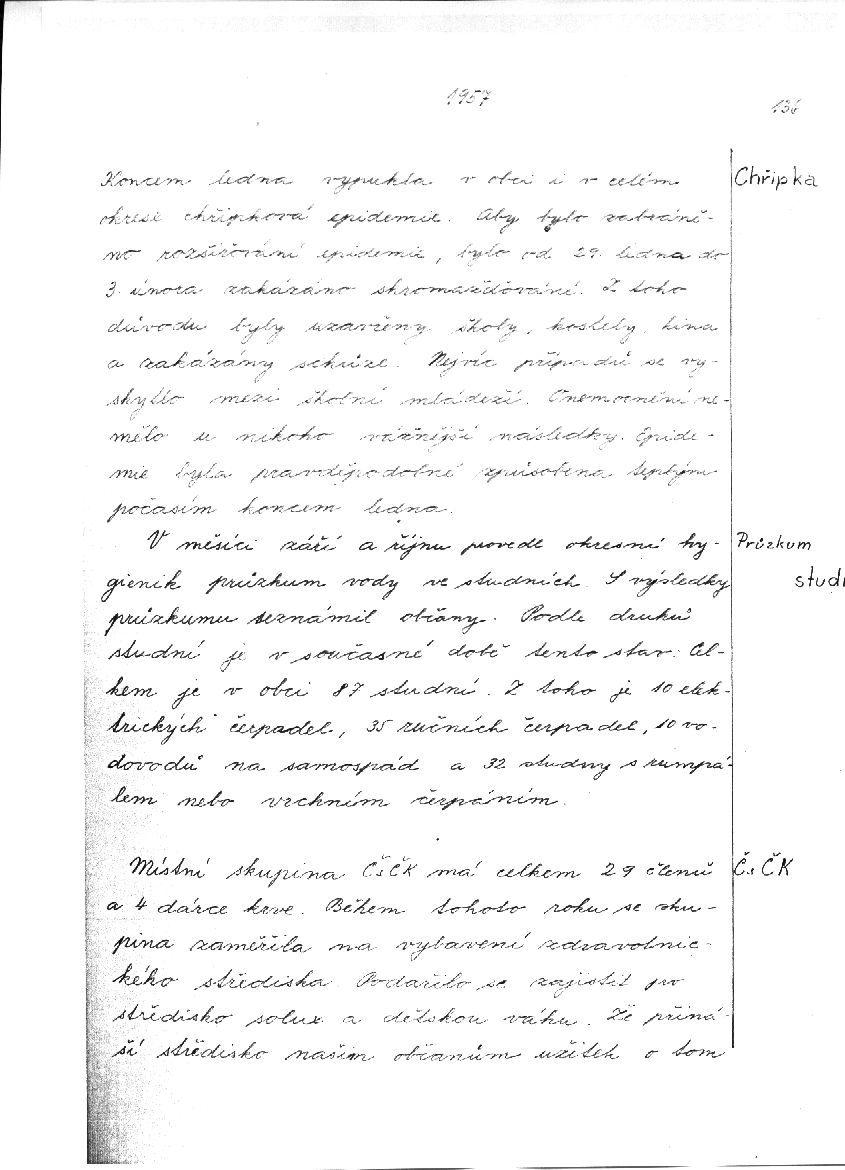 1957
136
Koncem ledna vypukla v obci i v celém
Chřipka
okrese chřipková epidemie. Aby bylo zabráně-
no rozšiřování epidemie, bylo od 29. ledna do
3. února zakázáno shromažďování. Z toho
důvodu byly uzavřeny školy, kostely, kina
a zakázány schůze. Nejvíc případů se vy-
skytlo mezi školní mládeží. Onemocnění ne-
mělo u nikoho vážnější následky. Epide-
mie byla pravděpodobně způsobena teplým
počasím koncem ledna.
V měsíci září a říjnu provedl okresní hy-
Průzkum
gienik průzkum vody ve studních. S výsledky
studn
průzkumu seznámil občany. Podle druhů
studní je v současné době tento stav: Cel-
kem je v obci 87 studní. Z toho je 10 elek-
trických čerpadel, 35 ručních čerpadel, 10 vo-
dovodů na samospád a 32 studny s rumpá-
lem nebo vrchním čerpáním.
Místní skupina ČsČK má celkem 29 členů
ČsČK
a 4 dárce krve. Během tohoto roku se sku-
pina zaměřila na vybavení zdravotnic-
kého střediska. Podařilo se zajistit pro
středisko solux a dětskou váhu. Že přiná-
ší středisko našim občanům užitek o tom